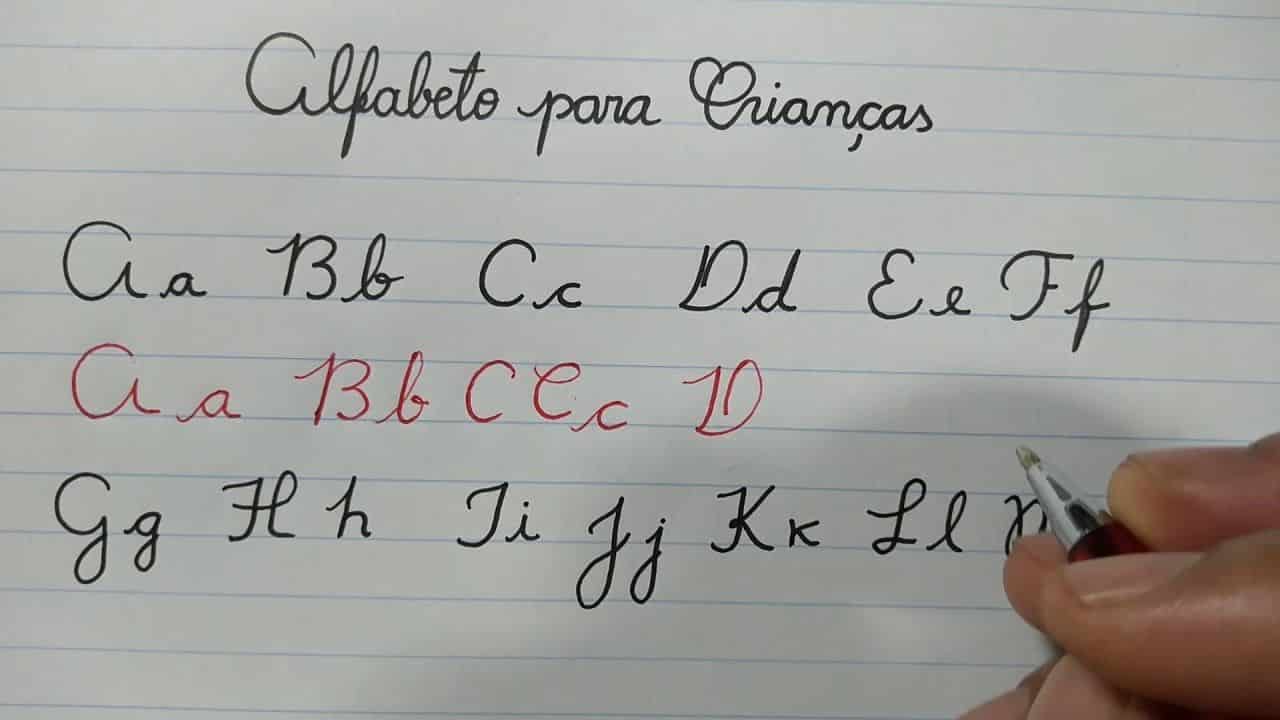 Alfabeto para Crianças
Aa Bb Cc Dd Ee Ff
Aa Bb C Cc D
Gg Hh Ii Jj Kk Ll